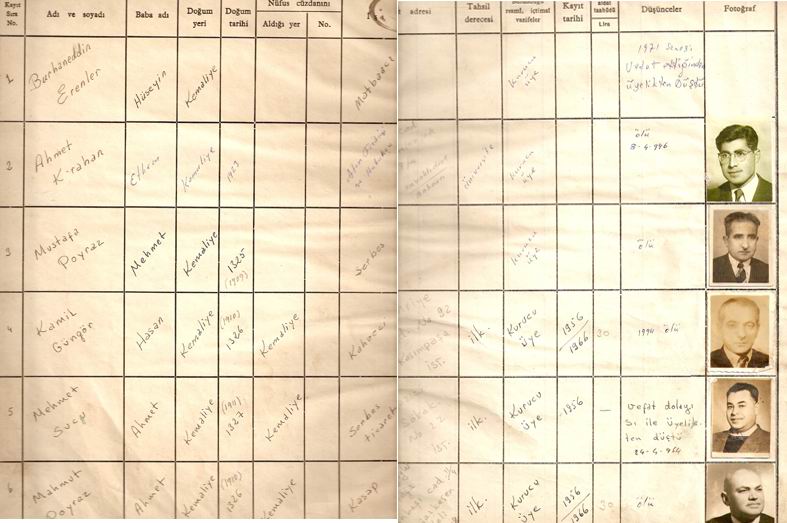 Kayıt
Sıra
No.
Adı ve soyadı
Baba adı
Doğum
yeri
Doğum
tarihi
Nüfus cüzdanını
Aldığı yer
No.
adresi
Tahsil
derecesi
resmî, içtimai
vazifeler
Kayıt
tarihi
aidat
taahüdü
Lira
Düşünceler
Fotoğraf
1
Burhaneddin
Erenler
Hüseyin
Kemaliye
Matbaacı
Kurucu
üye
1971 Senesi
Vefat ettiğinden
üyelikten Düştü
2
Ahmet
Kırahan
Ethem
Kemaliye
1923
Üniversite
Kurucu
üye
ölü
3
Mustafa
Poyraz
Mehmet
Kemaliye
1325
(1909)
Serbes
Kurucu
üye
ölü
4
Kamil
Güngör
Hasan
Kemaliye
(1910)
1326
Kemaliye
Kahveci
No 92
Kasımpaşa
İST.
ilk.
Kurucu
üye
1956
1966
30
1994 ölü
5
Mehmet
Sucu
Ahmet
Kemaliye
(1911)
1327
Kemaliye
Serbes
ticaret
Sokak
İST.
ilk.
Kurucu
üye
1956
—
vefat dolayı
sı ile üyelik-
ten düştü
24-4-964
6
Mahmut
Poyraz
Ahmet
Kemaliye
(1910)
1326
Kemaliye
Kasap
cad.
ilk.
Kurucu
üye
1956
1966
30
ölü